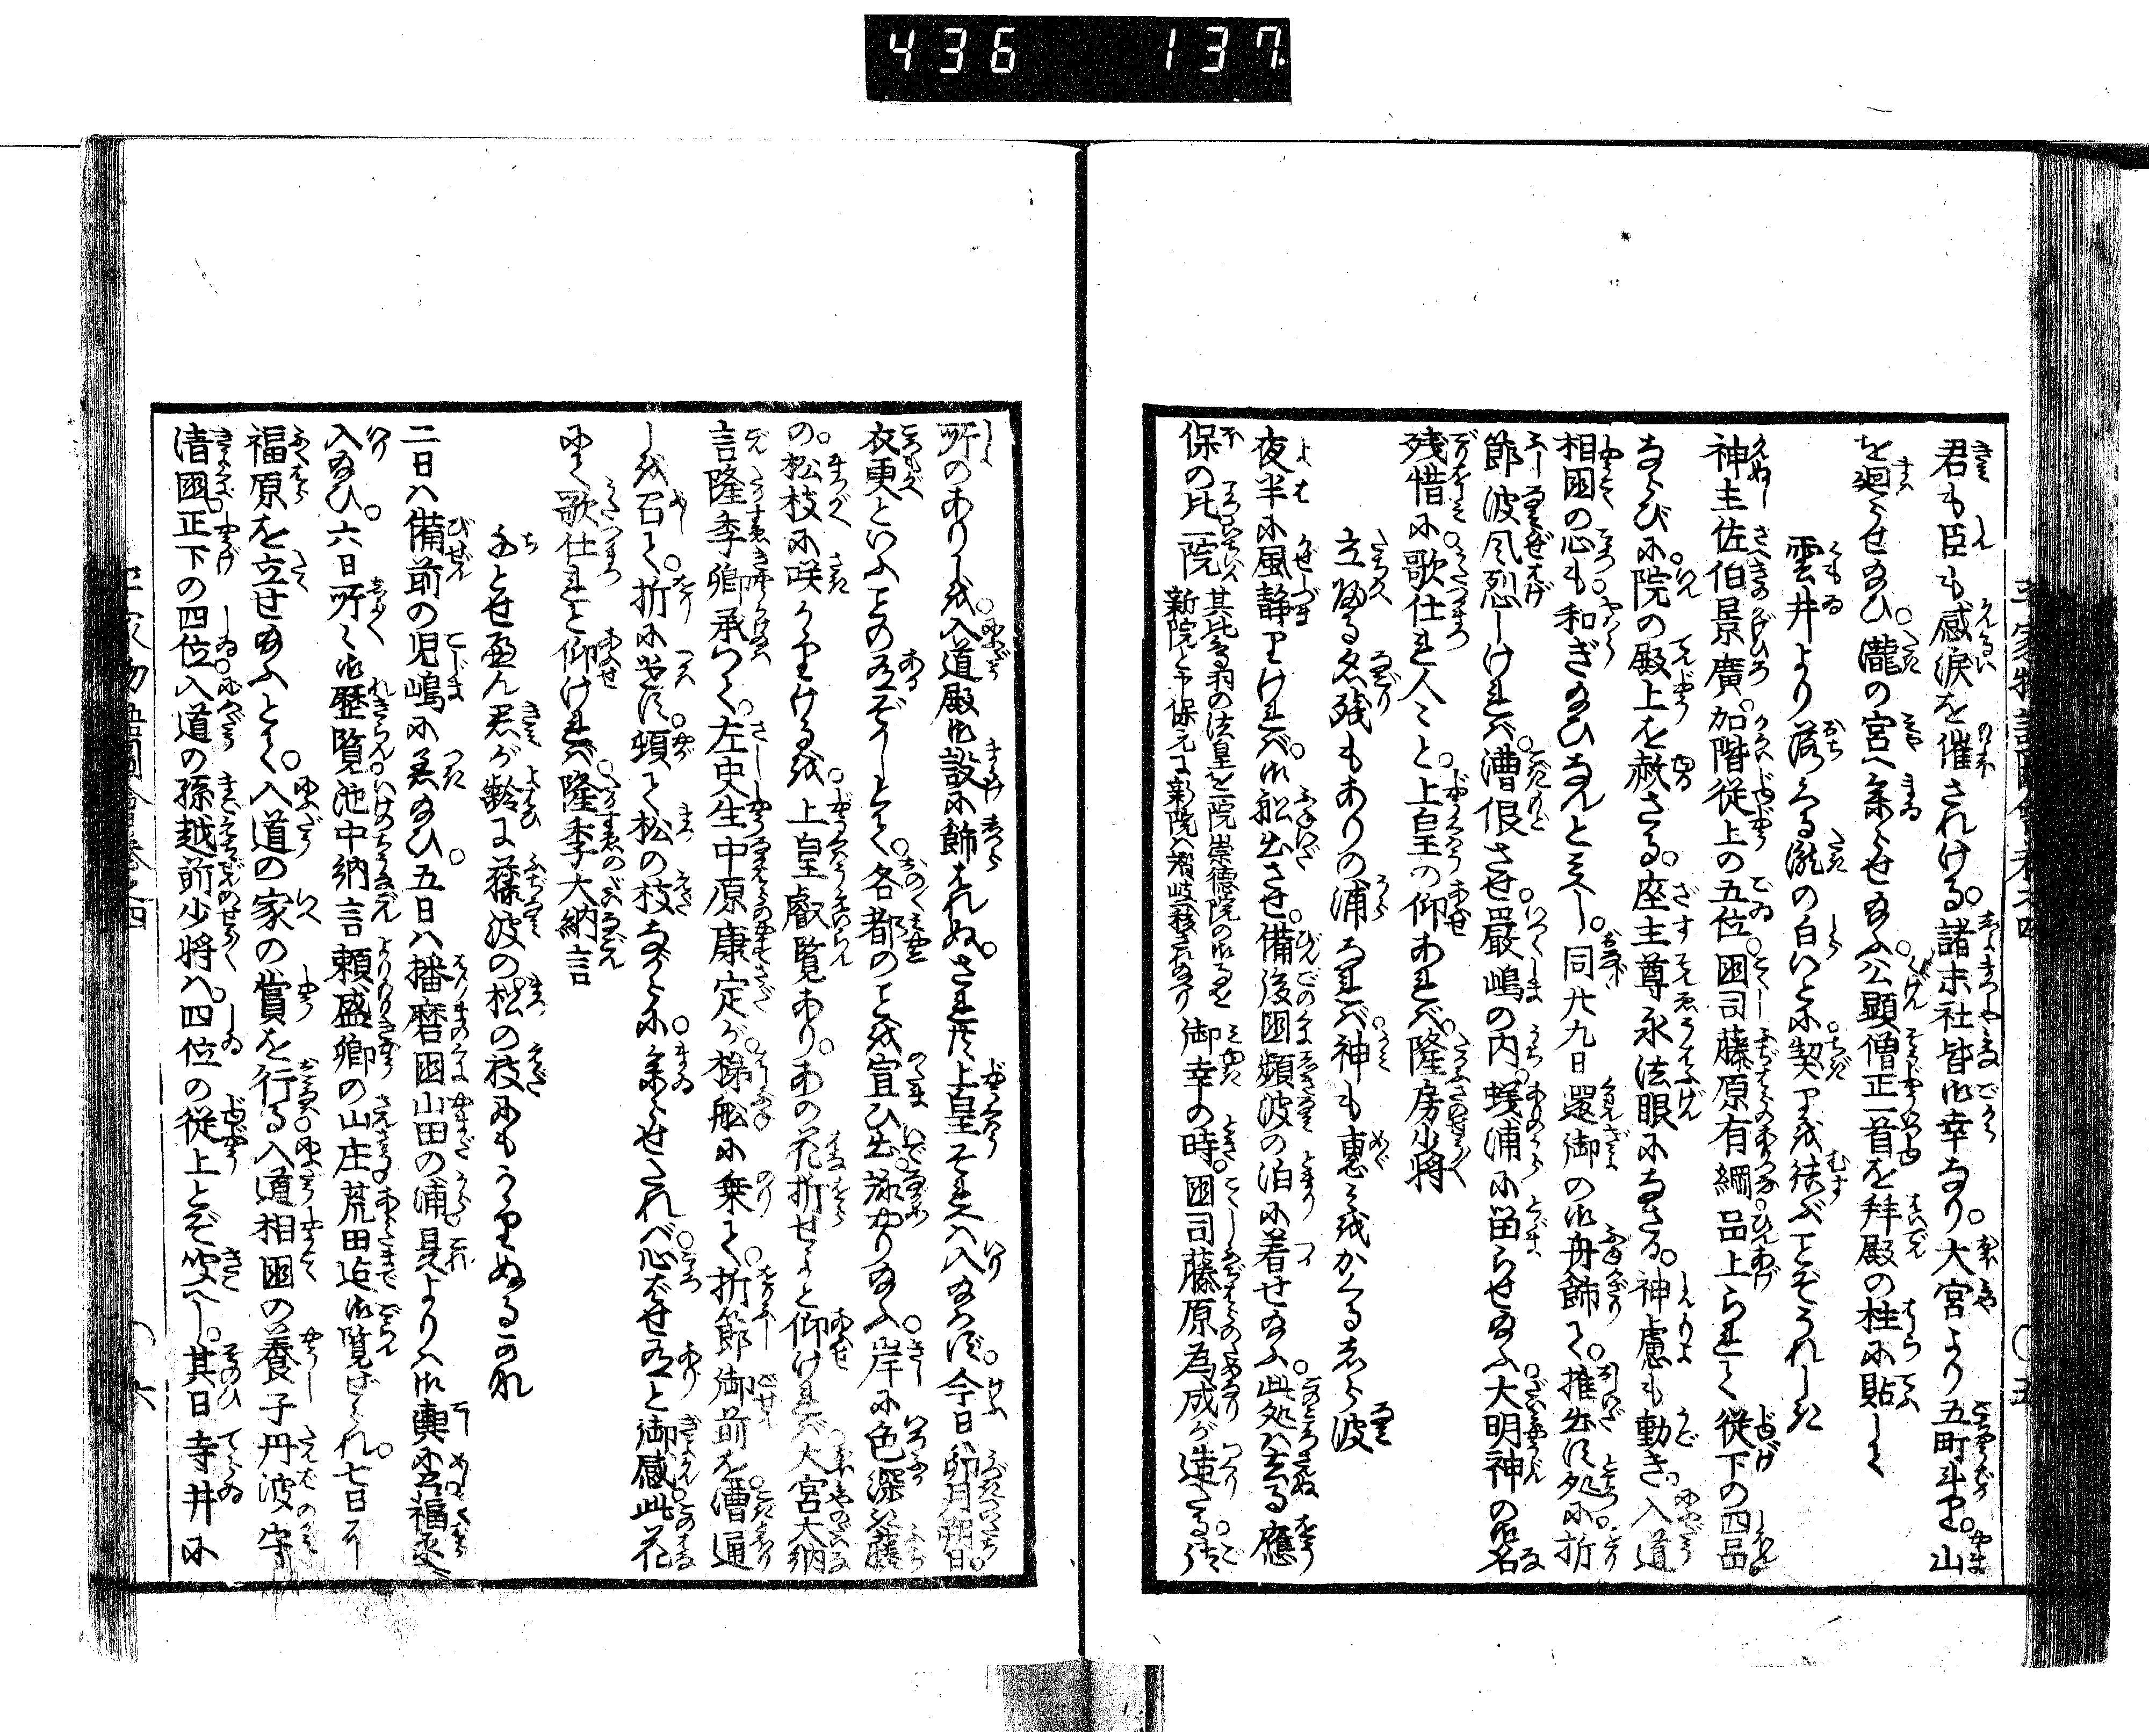 436 137
君も臣も感涙を催されける。諸末社皆御幸なり。大宮より五町斗り。山
を廻らせ給ひ。瀧の宮へ參らせ給ふ。公顕僧正一首を拝殿の柱に貼して
雲井より落くる瀧の白いとに契りを結ぶことぞうれしき
神主佐伯景廣。加階従上の五位。国司藤原有綱品上られて従下の四品
ならびに。院の殿上を赦さる。座主尊永法眼になさる。神慮も動き。入道
相国の心も。和ぎ給ひなんと見へし。同廿九日還御の御舟飾て。推出す処に折
節波風烈しければ。漕但させ。厳嶋の内。蟻浦に留らせ給ふ大明神の御名
残惜に。歌仕れ人々と。上皇の仰あれば。隆房少将
立帰る名残もありの浦なれば神も恵みをかくるしら波
夜半に風静りければ。御舩出させ。備後国頻波の泊に着せ給ふ。此処は去る應
保の比一院 其比鳥羽の法皇を一院崇徳院の御事を
新院と申保元に新院は讃岐へ移されたまへり
御幸の時。国司藤原為成が造たる御
所のありしを。入道殿御設に飾られぬ。されども上皇それへは入給はず。今日は卯月朔日。
衣更といふことのあるぞかしとて。各都のことを宣ひ出。詠やり給ふ。岸に色深き藤
の。松枝に咲かゝりけるを。上皇叡覧あり。あの花折せよと仰ければ大宮大納
言隆季卿承つて。左史生中原康定が。梯舩に乗て。折節御前を。漕通
しを召て。折に遣す。頓て松の枝ながらに。參らせたれば。心ばせありと御感。此花
にて歌仕れと仰ければ。隆季大納言
千とせ經ん君が齢に藤波の松の枝にもかゝりぬるかな
二日は備前の児嶋に着給ひ。五日は播磨国山田の浦。是よりは御輿にて福原へ
入給ひ。六日所々御歴覧池中納言頼盛卿の山庄荒田迄御覧ぜられ。七日に
福原を立せ給ふとて。入道の家の賞を行る入道相国の養子丹波守
清国。正下の四位。入道の孫越前少将は。四位の従上とぞ聞へし。其日寺井に